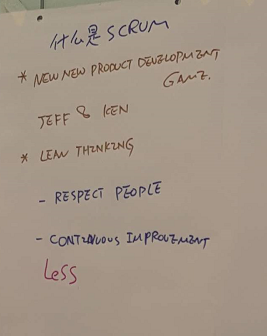 什么是 SCRUM
* NEW NEW PRODUCT DEVELOPMENT
GAME.
JEFF & KEN
* LEAN THINKING
- RESPECT PEOPLE
- CONTINUOUS IMPROVEMENT
LeSS